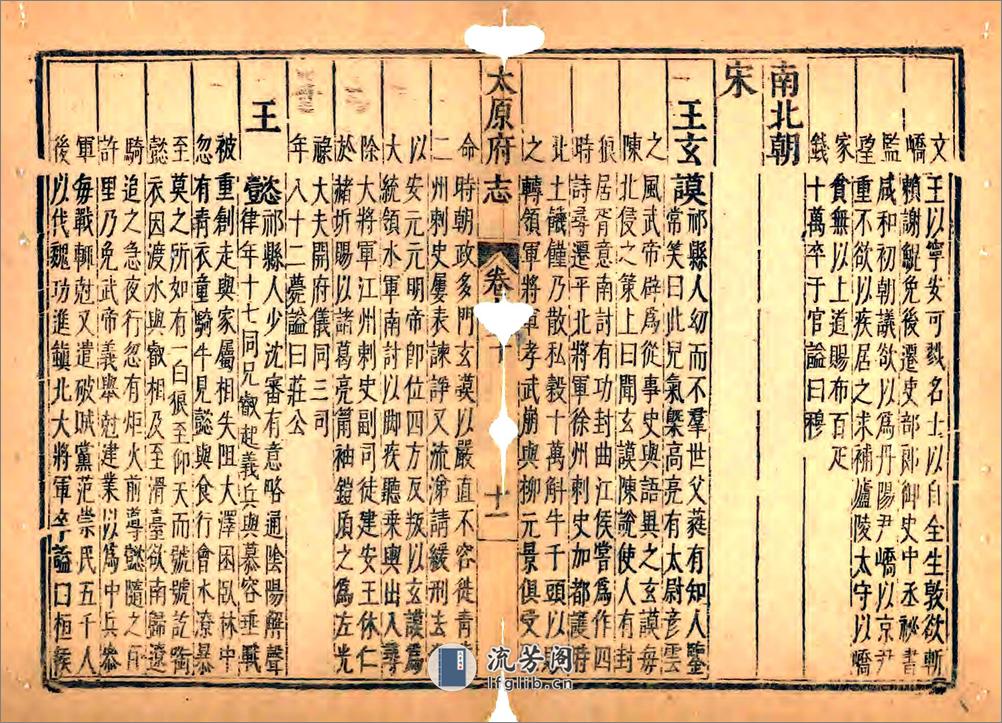 文王以寧安可戮名士以自全生敦欲斬
嶠賴謝鯤免後遷吏部郎御史中丞祕書
監咸和初朝議欲以為丹陽尹嶠以京尹
望重不欲以疾居之求補廬陵太守以
家貧無以上道賜布百疋
錢十萬卒于官謚曰穆
南北朝
宋
王玄謨祁縣人幼而不羣世父蕤有知人鑒
常笑曰此兒氣槩高亮有太尉彥雲
之風武帝辟為從事史與語異之玄謨每
陳北侵之策上曰聞玄謨陳說使人有封
狼居胥意南討有功封曲江侯嘗為作四
時詩尋遷平北將軍徐州刺史加都護時
北土饑饉乃散私穀十萬斛牛千頭以
之轉領軍將軍孝武崩與柳元景俱受
太原府志 卷 十 十一
命時朝政多門玄謨以嚴直不容徙青
二州刺史屢表諫諍又流涕請緩刑去
以安元元明帝即位四方反叛以玄謨
大統領水軍南討以脚疾聽乘輿出入尋
除大將軍江州刺史副司徒建安王休仁
於赭圻賜以諸葛亮筩袖鎧頃之為左光
祿大夫開府儀同三司
年八十二薨謚曰莊公
王懿祁縣人少沈審有意略通陰陽解聲
律年十七同兄叡起義兵與慕容垂戰
被重創走與家屬相失阻大澤困臥林中
忽有青衣童騎牛見懿與食行會水潦暴
至莫之所如有一白狼至仰天而號號訖銜
懿衣因渡水與叡相及至滑臺欲南歸遼
騎追之急夜行忽有炬火前導懿隨之
許里乃免武帝義舉尅建業以為中兵參
軍每戰輒尅又遣破賊黨范崇民五千人
後以代魏功進鎮北大將軍卒謚曰桓侯
流芳阁
lfglib.cn